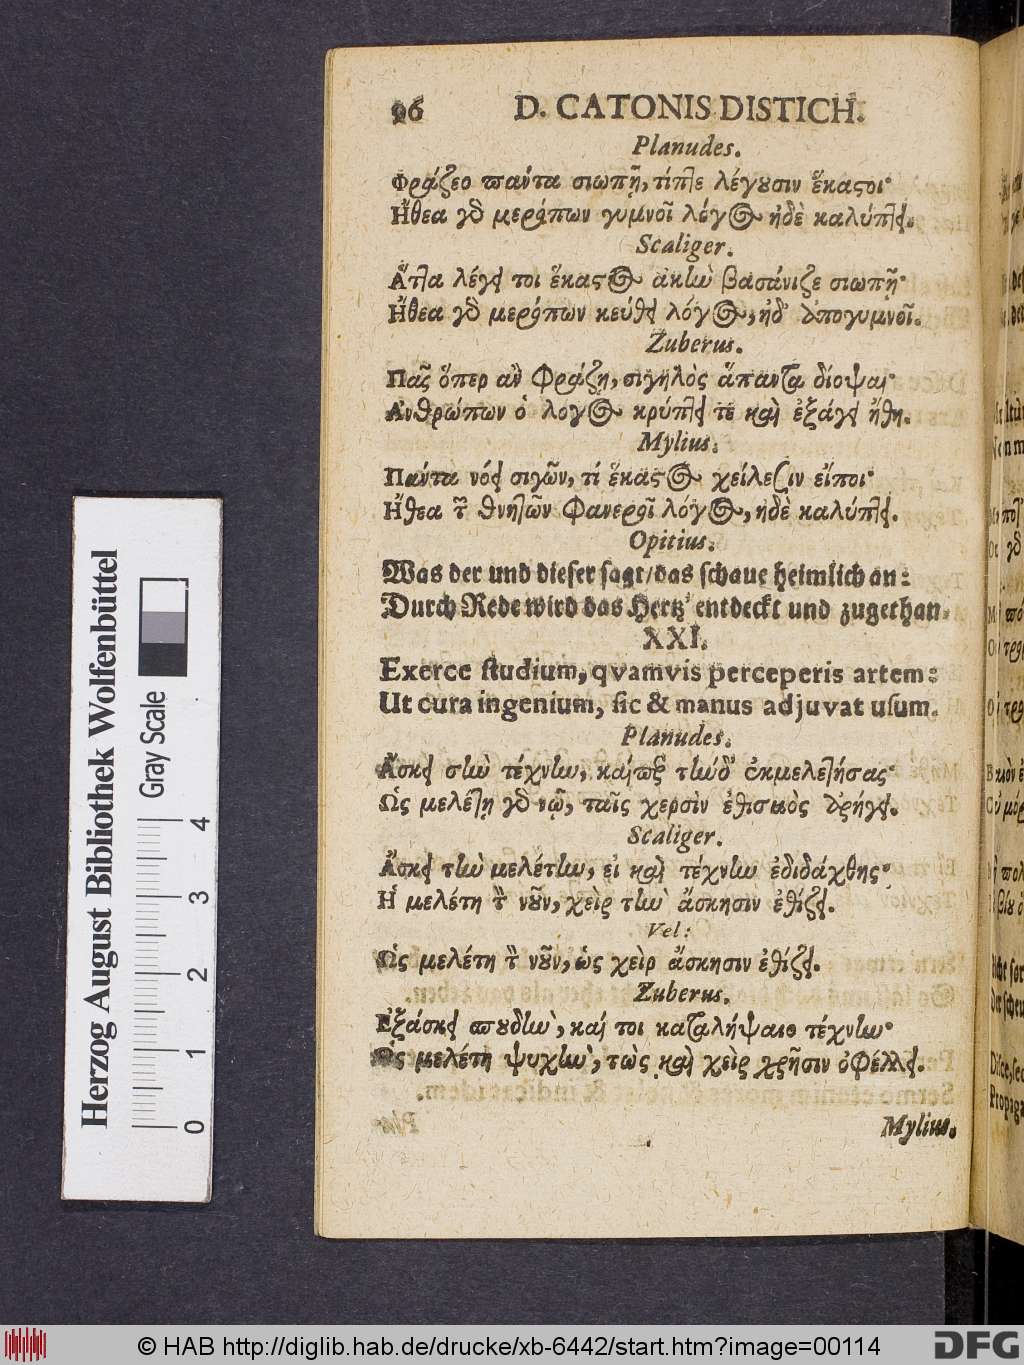 96 D. CATONIS DISTICH.
Planudes.
Φράζεο πάντα σιωπῇ, τίπτε λέγουσιν ἕκαστοι·
Ἤθεα γὸ μερόπων γυμνοῖ λόγος ἠδὲ καλύπτει.
Scaliger.
Ἅττα λέγει τοι ἕκαστος ἀκὴν βασάνιζε σιωπῇ·
Ἤθεα γὸ μερόπων κεύθει λόγος, ἠδ' ἀπογυμνοῖ.
Zuberus.
Πᾶς ὅπερ ἂν Φράζῃ, σιγηλὸς ἅπαντα δίοψαι·
Ἀνθρώπων ὁ λογος κρύπτει τε καὶ ἐξάγει ἤθη.
Mylius.
Πάντα νόει σιγῶν, τί ἕκαστος χείλεσιν εἴποι·
Ἤθεα τ θνητῶν Φανεροῖ λόγος, ἠδὲ καλύπτει.
Opitius.
Was der und dieser sagt/das schaue heimlich an:
Durch Rede wird das Hertz' entdeckt und zugethan.
XXI.
Exerce studium, qvamvis perceperis artem:
Ut cura ingenium, sic & manus adjuvat usum.
Planudes.
Ἄσκει σὴν τέχνην, καίπερ τήνδ' ἐκμελετήσας·
Ὡς μελέτη γὸ νῷ, ταῖς χερσὶν ἐθισμὸς ἀρήγει.
Scaliger.
Ἄσκει τὴν μελέτην, εἰ καὶ τέχνην ἐδιδάχθης·
Ἡ μελέτη τ νοῦν, χεὶρ τὴν ἄσκησιν ἐθίζει.
Vel:
Ὡς μελέτη τ νοῦν, ὡς χεὶρ ἄσκησιν ἐθίζει.
Zuberus.
Ἐξάσκει σπουδὴν, καί τοι καταλήψαιο τέχνην·
Ὡς μελέτη ψυχὴν, τὼς καὶ χεὶρ χρῆσιν ὀφέλλει.
Mylius.
Herzog August Bibliothek Wolfenbüttel
Gray Scale
0 1 2 3 4
© HAB http://diglib.hab.de/drucke/xb-6442/start.htm?image=00114
DFG